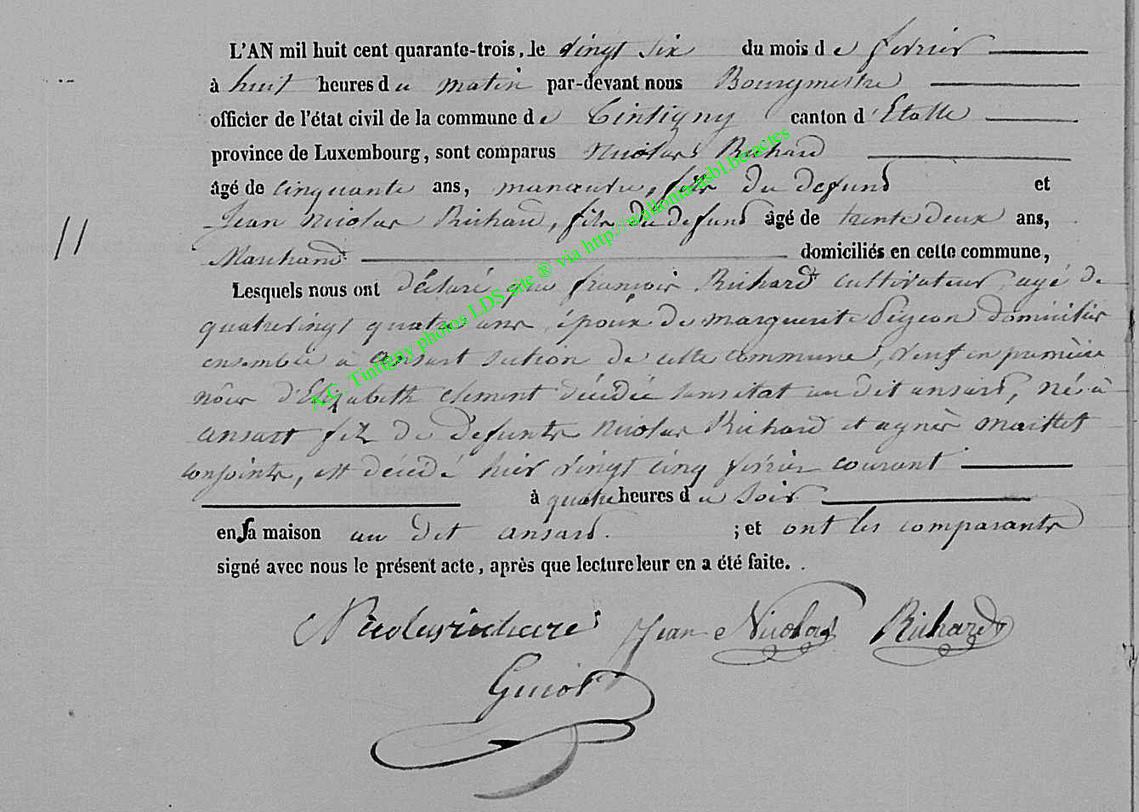 L'AN mil huit cent quarante-trois, le vingt six du mois de fevrier
à huit heures du matin par-devant nous Bourgmestre
officier de l'état civil de la commune de Tintigny canton d'Etalle
province de Luxembourg, sont comparus Nicolas Richard
âgé de cinquante ans, manœuvre, fils du defunt et
Jean Nicolas Richard, fils du defunt âgé de trente deux ans,
Marchand domiciliés en cette commune,
Lesquels nous ont déclaré que françois Richard cultivateur, agé de
quatrevingt quatre ans, époux de marguerite Pigeon domiciliés
ensemble à Ansart section de cette commune, veuf en première
nôce d'Elisabeth Clement décédée sans état au dit ansart, né à
ansart fils de defunts Nicolas Richard et agnès Maillet
conjoints, est décédé hier vingt cinq fevrier courant
à quatre heures du soir
en sa maison au dit ansart. ; et ont les comparants
signé avec nous le présent acte, après que lecture leur en a été faite.
Nicolas richard Jean Nicolas Richard
Guiot
11
A.C. Tintigny photos LDS site ® via http://wallonica.asbl.be/actes